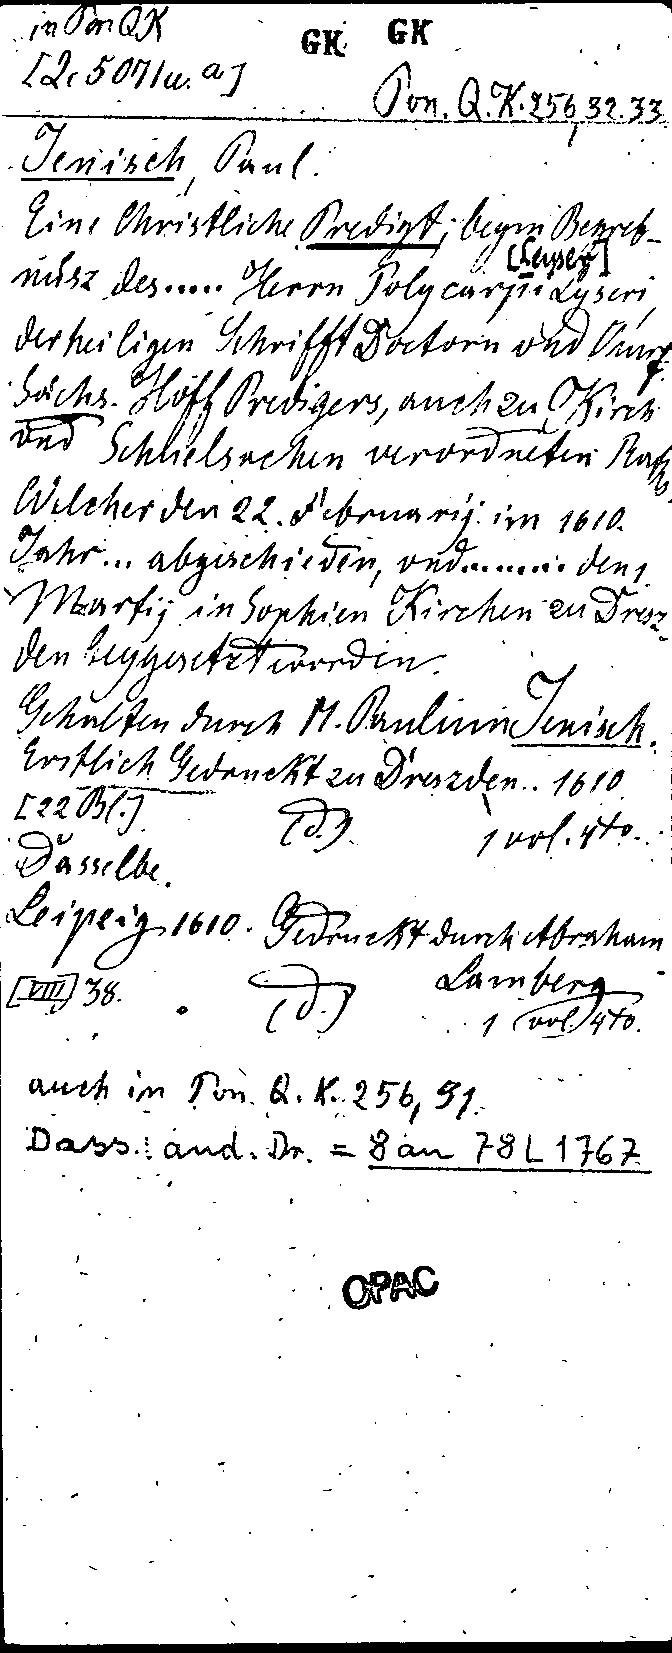 in Pon QK
GK GK
[2. 5071 u. a]
Pon. Q. K. 256, 32. 33
Jenisch, Paul.
Eine Christliche Predigt; beym Begreb-
nüsz des..... Herrn Polycarpi Lyseri, [Leyser]
der heiligen Schrifft Doctorn vnd Churf.
Sächs. Hoff Predigers, auch zu Kirch
vnd Schuelsachen verordneten Raths
Welcher den 22. Februarij im 1610.
Jahr... abgeschieden, vnd......... den 1.
Martij in Sophien Kirchen zu Dresz-
den beygesetzt worden.
Gehalten durch M. Paulum Jenisch.
Erstlich Gedruckt zu Dreszden.. 1610
[22 Bl.] (d.) 1 vol. 4to.
Dasselbe.
Leipzig 1610. Gedruckt durch Abraham
Lamberg
[VIII] 38. (d.) 1 vol 4to.
auch in Pon. Q. K. 256, 51.
Dass. and. Dr. = 8 an 78 L 1767
OPAC